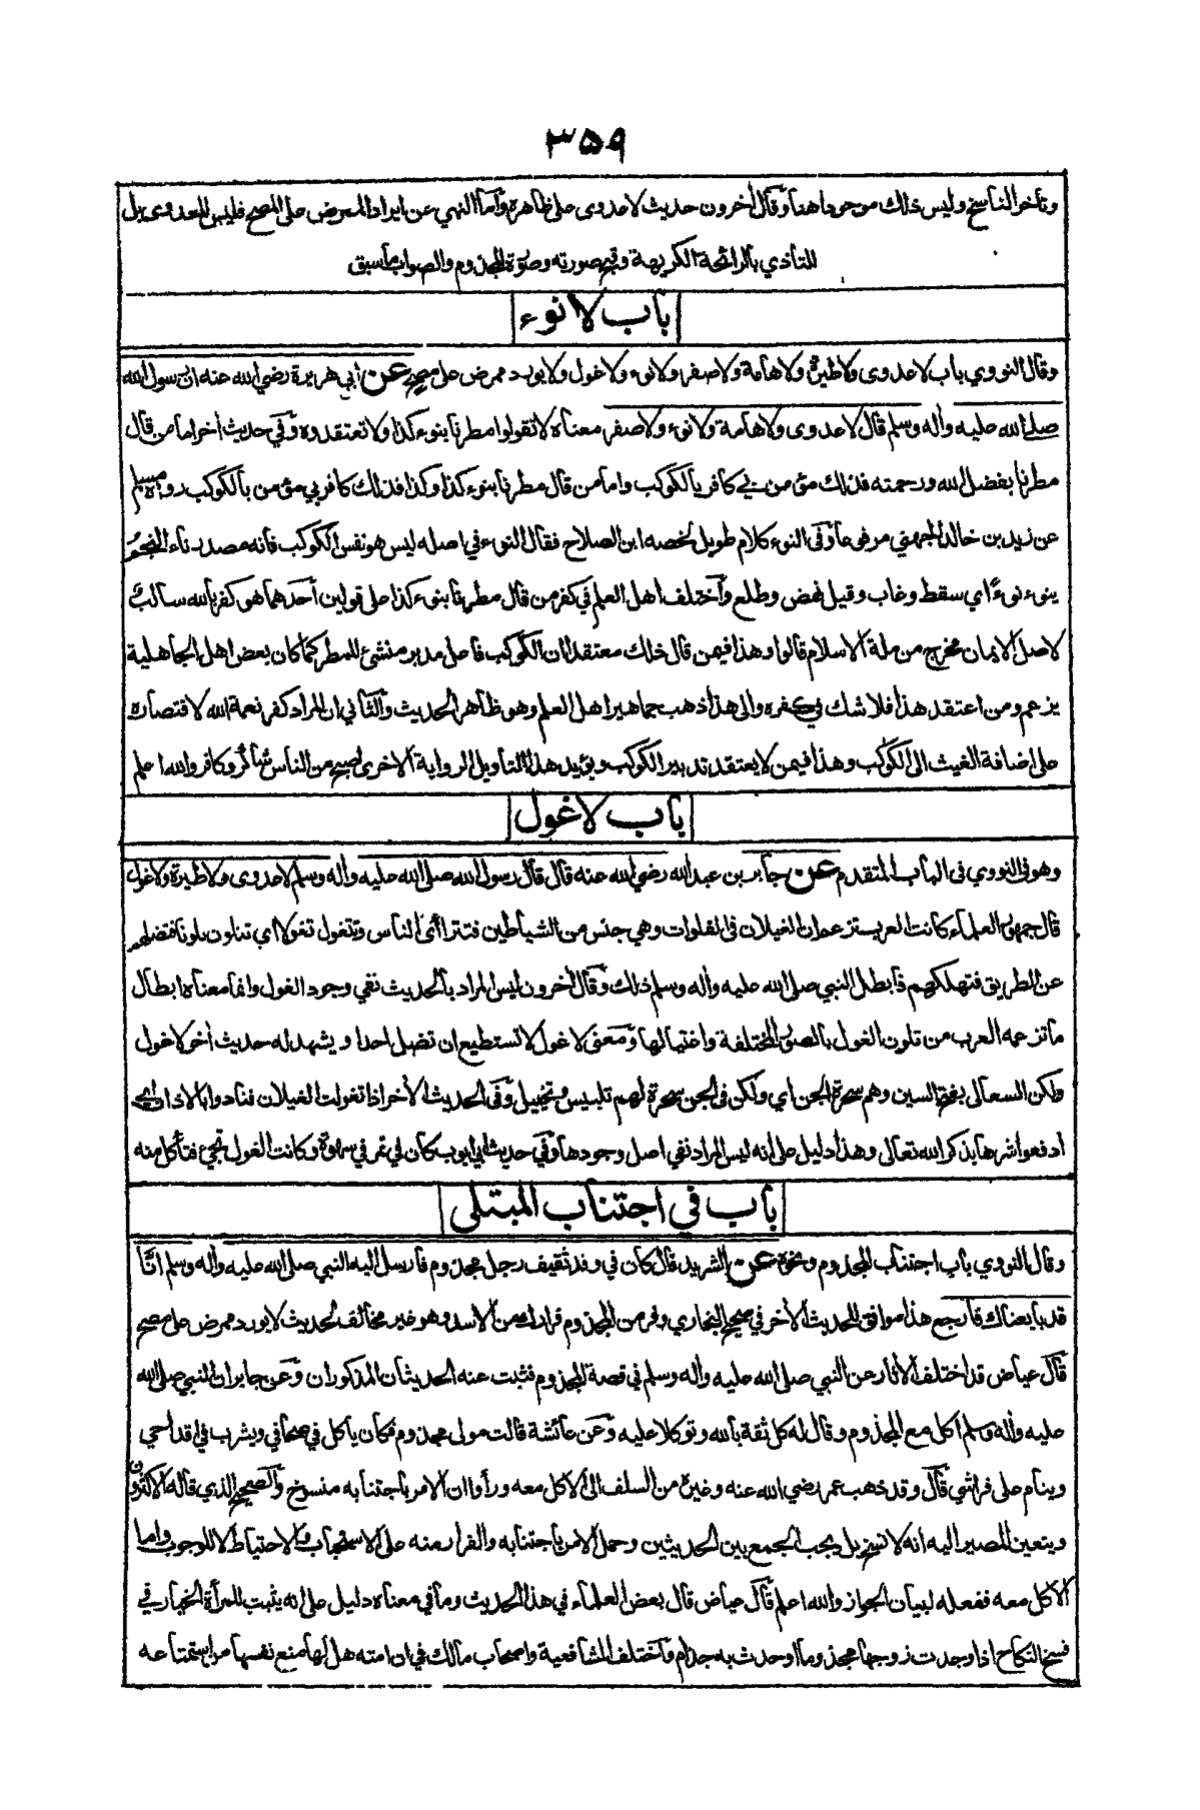 ٣٥٩
وتأخر الناسخ وليس ذلك موجودا هنا وقال أخرون حديث لا عدوى على ظاهره وأما النهي عن ايراد الممرض على المصح فليس للعدوى بل
للتأذي بالرائحة الكريهة وقبح صورته وصورة المجذوم والصواب ما سبق
باب لا نوء
وقال النووي باب لا عدوى ولا طيرة ولا هامة ولا صفر ولا نوء ولا غول ولا يورد ممرض على مصح عن ابي هريرة رضي الله عنه ان رسول الله
صلى الله عليه وأله وسلم قال لا عدوى ولا هامة ولا نوء ولا صفر معناه لا تقولوا مطرنا بنوء كذا ولا تعتقدوه وفي حديث أخر اما من قال
مطرنا بفضل الله ورحمته فذلك مؤمن بي كافر بالكوكب واما من قال مطرنا بنوء كذا وكذا فذلك كافر بي مؤمن بالكوكب رواه مسلم
عن زيد بن خالد الجهني مرفوعا وفي النوء كلام طويل لخصه ابن الصلاح فقال النوء في اصله ليس هو نفس الكوكب فانه مصدر ناء النجم
ينوء نوءًا اي سقط وغاب وقيل نهض وطلع وأختلف اهل العلم في كفر من قال مطرنا بنوء كذا على قولين أحدهما هو كفر بالله سالب
لاصل الايمان مخرج من ملة الاسلام قالوا وهذا فيمن قال ذلك معتقدا ان الكوكب فاعل مدبر منشئ للمطر كما كان بعض اهل الجاهلية
يزعم ومن اعتقد هذا فلا شك في كفره والى هذا ذهب جماهير اهل العلم وهو ظاهر الحديث والثاني ان المراد كفر نعمة الله لاقتصاره
على اضافة الغيث الى الكوكب وهذا فيمن لا يعتقد تدبير الكوكب ويؤيد هذا التأويل الرواية الاخرى اصبح من الناس شاكر وكافر والله اعلم
باب لا غول
وهو في النووي في الباب المتقدم عن جابر بن عبد الله رضي الله عنه قال قال رسول الله صلى الله عليه وأله وسلم لا عدوى ولا طيرة ولا غول
قال جمهور العلماء كانت العرب تزعم ان الغيلان في الفلوات وهي جنس من الشياطين فتتراأى الناس وتتغول تغولا اي تتلون تلونا فتضلهم
عن الطريق فتهلكهم فأبطل النبي صلى الله عليه وأله وسلم ذلك وقال أخرون ليس المراد بالحديث نفي وجود الغول وانما معناه ابطال
ما تزعمه العرب من تلون الغول بالصور المختلفة واغتيالها ومعنى لا غول لا تستطيع ان تضل احدا ويشهد له حديث أخر لا غول
ولكن السعالى بفتح السين وهم سحرة الجن اي ولكن في الجن سحرة لهم تلبيس وتخييل وفي الحديث الأخر اذا تغولت الغيلان فنادوا بالاذان اي
ادفعوا شرها بذكر الله تعالى وهذا دليل على انه ليس المراد نفي اصل وجودها وفي حديث ابي ايوب كان لي تمر في سهوة وكانت الغول تجيء فتأكل منه
باب في اجتناب المبتلى
وقال النووي باب اجتناب المجذوم ونحوه عن الشريد قال كان في وفد ثقيف رجل مجذوم فأرسل اليه النبي صلى الله عليه وأله وسلم انا
قد بايعناك فارجع هذا موافق للحديث الأخر في صحيح البخاري وفر من المجذوم فرارك من الأسد وهو غير مخالف لحديث لا يورد ممرض على مصح
قال عياض قد اختلف الأثار عن النبي صلى الله عليه وأله وسلم في قصة المجذوم فثبت عنه الحديثان المذكوران وعن جابر ان النبي صلى الله
عليه وأله وسلم اكل مع المجذوم وقال له كل ثقة بالله وتوكلا عليه وعن عائشة قالت مولى مجذوم فكان يأكل في صحافي ويشرب في اقداحي
وينام على فراشي قال وقد ذهب عمر رضي الله عنه وغيره من السلف الى الأكل معه ورأوا ان الامر باجتنابه منسوخ والصحيح الذي قاله الاكثرون
ويتعين المصير اليه انه لا نسخ بل يجب الجمع بين الحديثين وحمل الامر باجتنابه والفرار منه على الاستحباب والاحتياط لا للوجوب واما
الأكل معه ففعله لبيان الجواز والله اعلم قال عياض قال بعض العلماء في هذا الحديث وما في معناه دليل على انه يثبت للمرأة الخيار في
فسخ النكاح اذا وجدت زوجها مجذوما او حدث به جذام وأختلف الشافعية واصحاب مالك في ان امته هل لها منع نفسها من استمتاعه